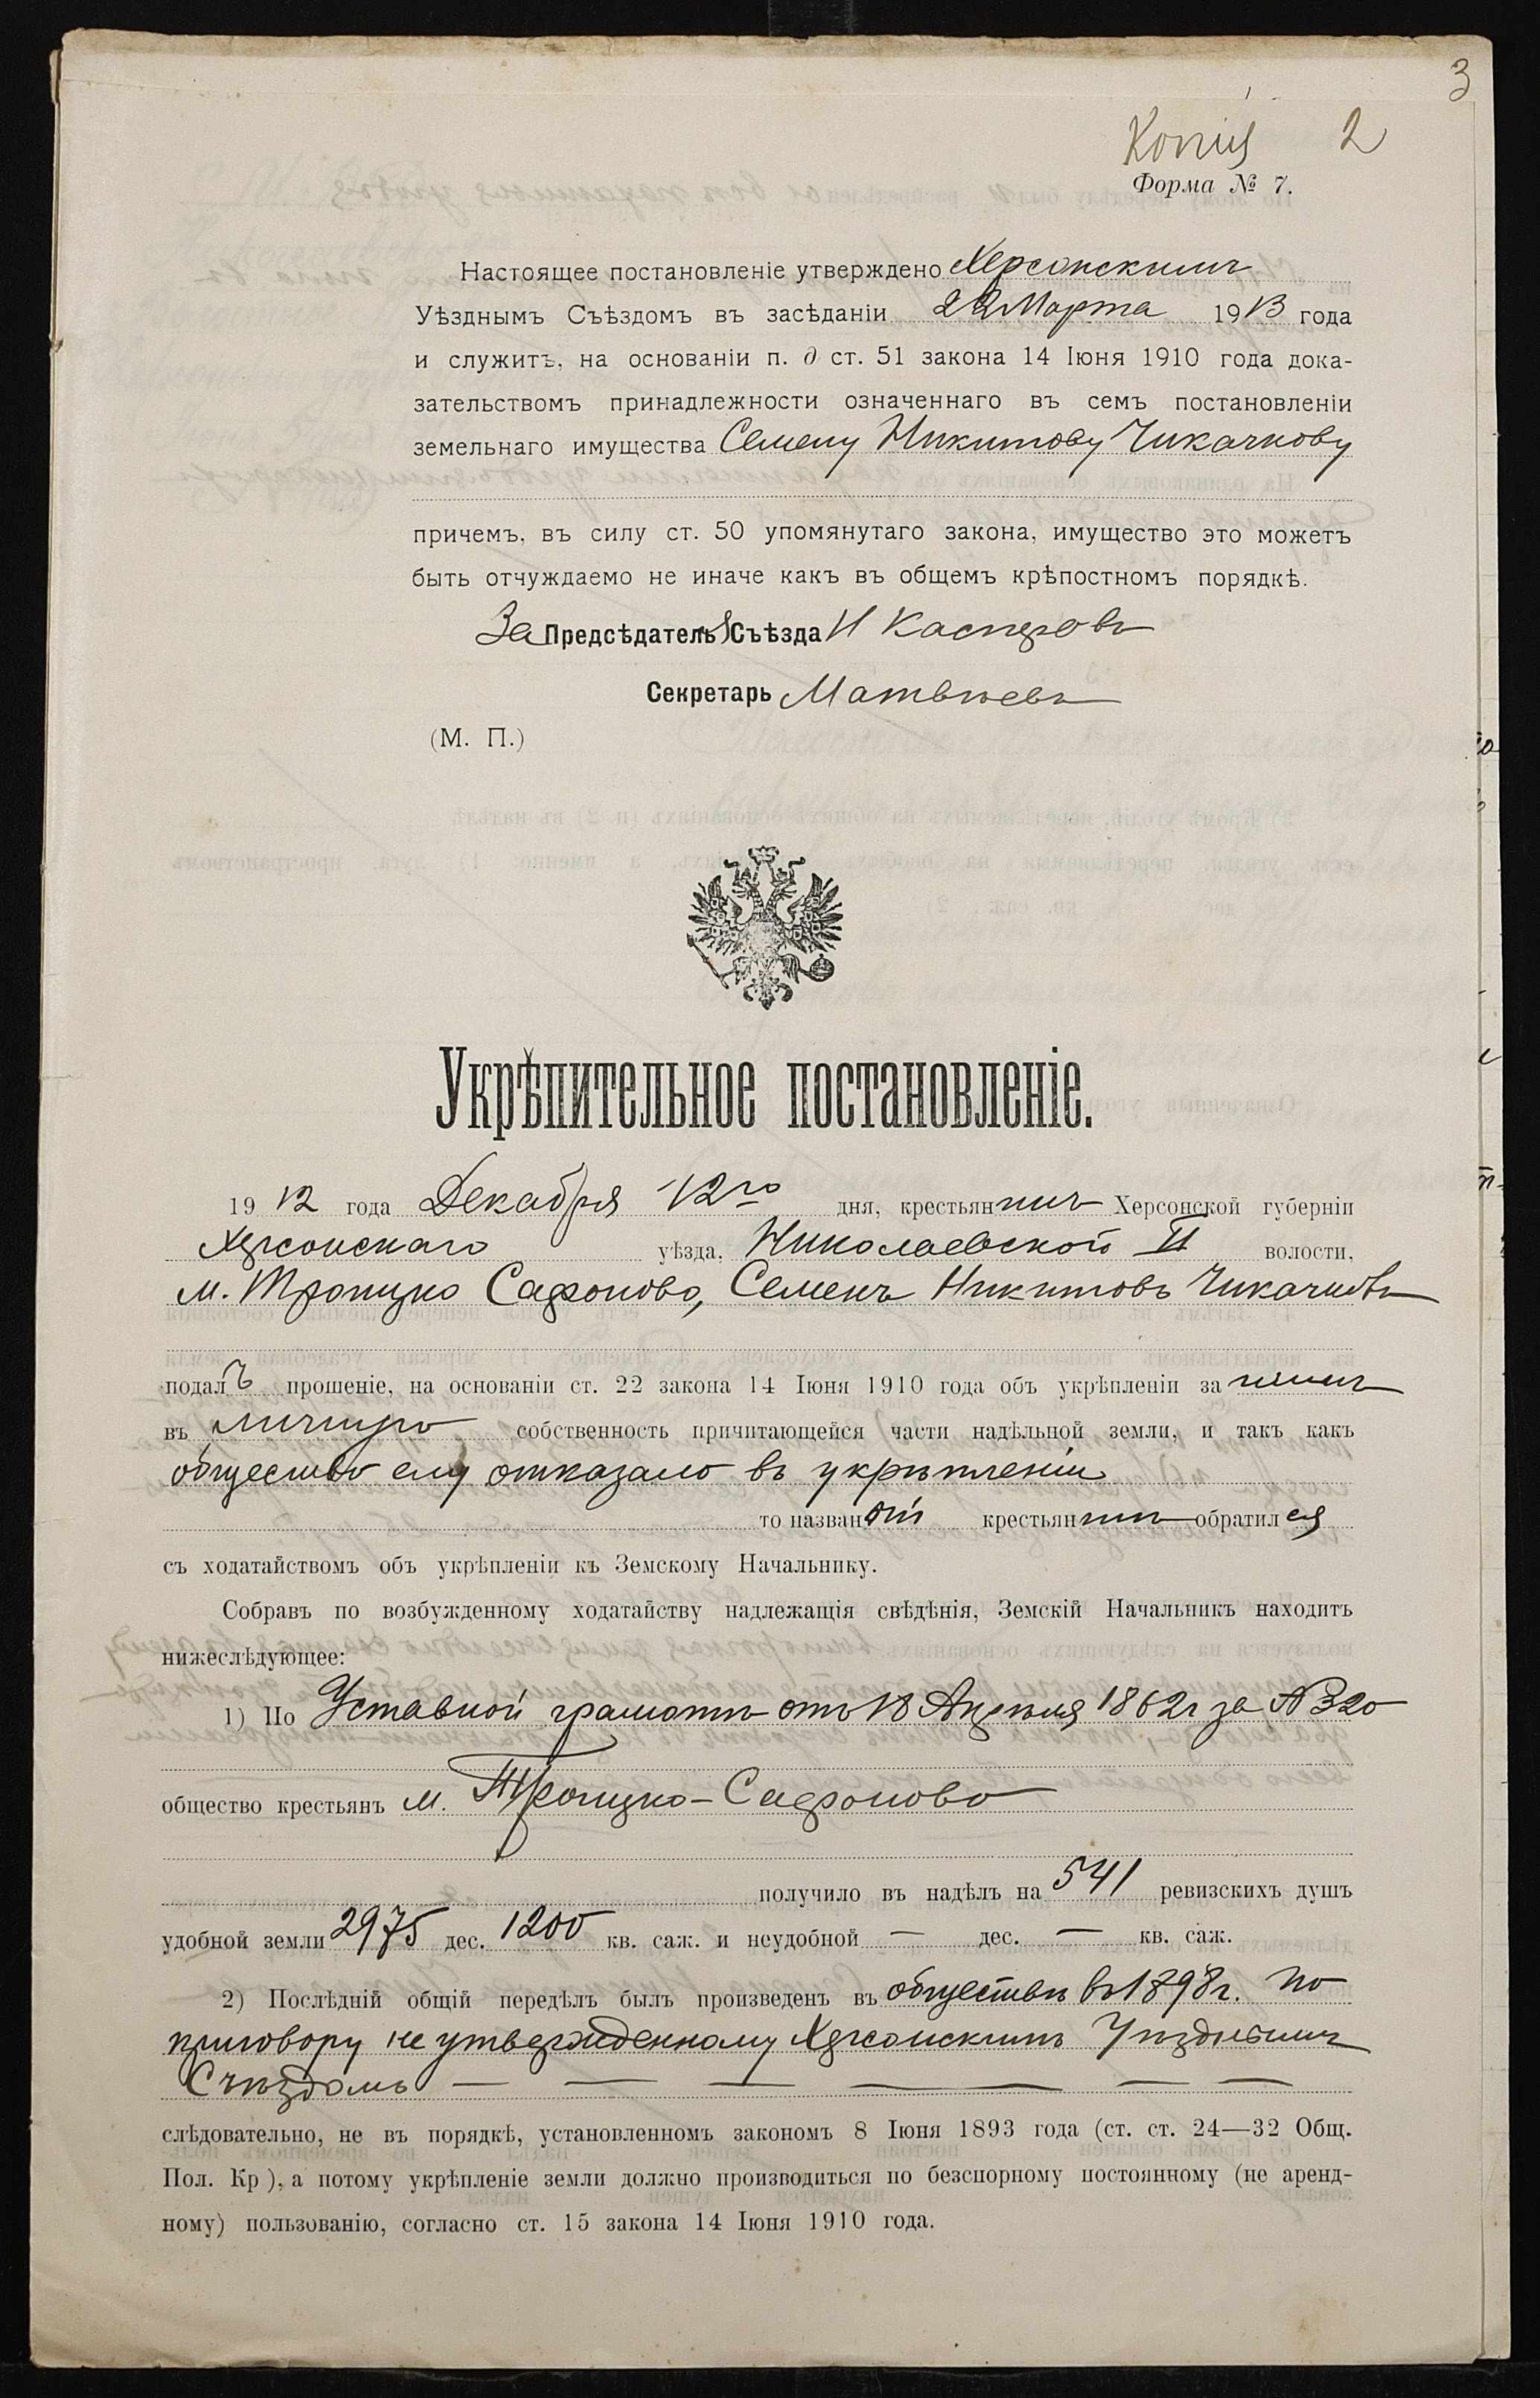 3
Копія 2
Форма № 7.
Настоящее постановленіе утверждено Херсонскимъ
Уѣзднымъ Съѣздомъ въ засѣданіи 22 Марта 1913 года
и служитъ, на основаніи п. д ст. 51 закона 14 Іюня 1910 года дока-
зательствомъ принадлежности означеннаго въ семъ постановленіи
земельнаго имущества Семену Никитову Чикачкову
причемъ, въ силу ст. 50 упомянутаго закона, имущество это можетъ
быть отчуждаемо не иначе какъ въ общемъ крѣпостномъ порядкѣ.
За Предсѣдателя Съѣзда Н Касперовъ
Секретарь Матвѣевъ
(М. П.)
Укрѣпительное постановленіе.
1912 года Декабря 12го дня, крестьянинъ Херсонской губерніи
Херсонскаго уѣзда, Николаевской II волости,
м. Троицко Сафоново, Семенъ Никитовъ Чикачковъ
подалъ прошеніе, на основаніи ст. 22 закона 14 Іюня 1910 года объ укрѣпленіи за нимъ
въ личную собственность причитающейся части надѣльной земли, и такъ какъ
общество ему отказало въ укрѣпленіи
то названый крестьянинъ обратился
съ ходатайствомъ объ укрѣпленіи къ Земскому Начальнику.
Собравъ по возбужденному ходатайству надлежащія свѣдѣнія, Земскій Начальникъ находитъ
нижеслѣдующее:
1) По Уставной грамотѣ отъ 18 Апрѣля 1862г за № 320
общество крестьянъ м. Троицко-Сафоново
получило въ надѣлъ на 541 ревизскихъ душъ
удобной земли 2975 дес. 1200 кв. саж. и неудобной — дес. — кв. саж.
2) Послѣдній общій передѣлъ былъ произведенъ въ обществѣ въ 1898г. по
приговору не утвержденному Херсонскимъ Уѣзднымъ
Съѣздомъ — — — — — — —
слѣдовательно, не въ порядкѣ, установленномъ закономъ 8 Іюня 1893 года (ст. ст. 24—32 Общ.
Пол. Кр ), а потому укрѣпленіе земли должно производиться по безспорному постоянному (не аренд-
ному) пользованію, согласно ст. 15 закона 14 Іюня 1910 года.